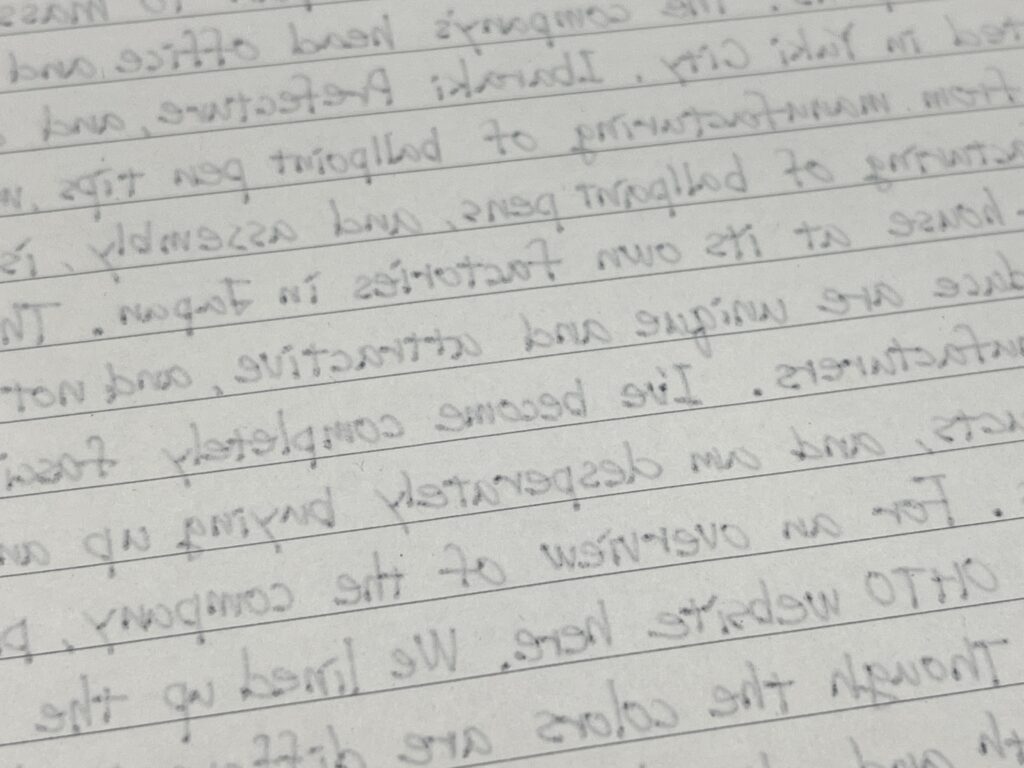 to mass
The company's head office and
ted in Yuki City, Ibaraki Prefecture, and
from manufacturing of ballpoint pen tips, m
acturing of ballpoint pens, and assembly, is
-house at its own factories in Japan. Th
duce are unique and attractive, and not
ufacturers. I've become completely fasci
ucts, and am desperately buying up an
. For an overview of the company, p
OHTO website here. We lined up the
Though the colors are diff
th and